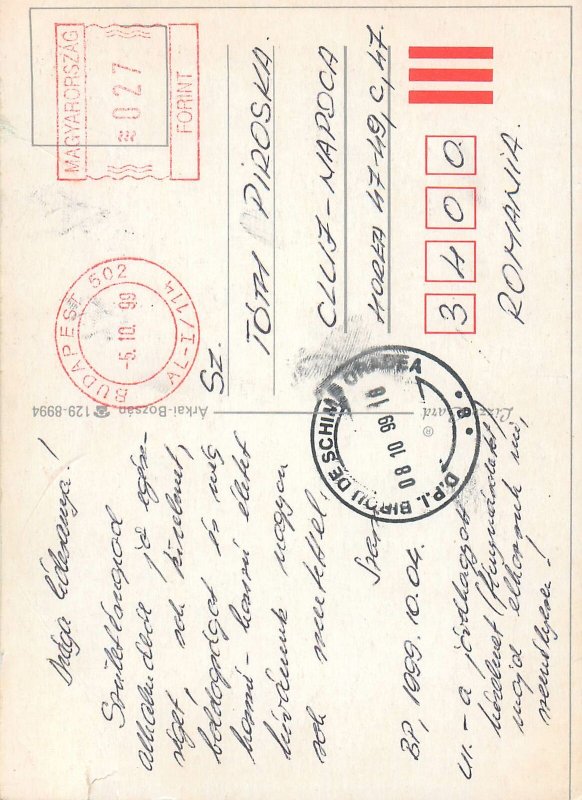 Drága Édesanyá!
Születésnapod
alkalmából jó egés-
séget, sok türelmet,
boldogságot és még
hosszú-hosszú életet
kívánunk nagyon
sok szeretettel,
BP, 1999. 10. 04.
ui. - a jóváhagyott
majd elhozzuk mi,
személyesen!
Árkai-Bozsán ☎ 129-8994
®
MAGYARORSZÁG
027
FORINT
BUDAPEST 502
-5.10.99
VL-I/114
SZ.
TÓTH PIROSKA
CLUJ-NAPOCA
HOREA 47-49, C, 47.
3400
ROMANIA.
D.P.J. BIROU DE SCHIMB ORADEA
08 10 99 10
* 8 *